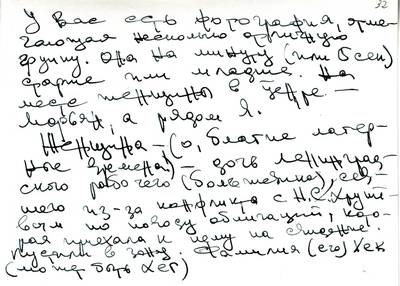 32
У вас есть фотография,
несколько
группу. Она на минуту (или 5 сек)
старше или младше. На
месте женщины в центре —
а рядом я.
Женщина — (о, благие лагер-
ные времена!) — дочь ленинград-
ского рабочего (большевика), сев-
шего из-за конфликта с Н.С. Хрущё-
вым по поводу облигаций, кото-
рая приехала к нему на свидание.
Пустили в зону. Фамилия (его) Хек
(может быть Хег)